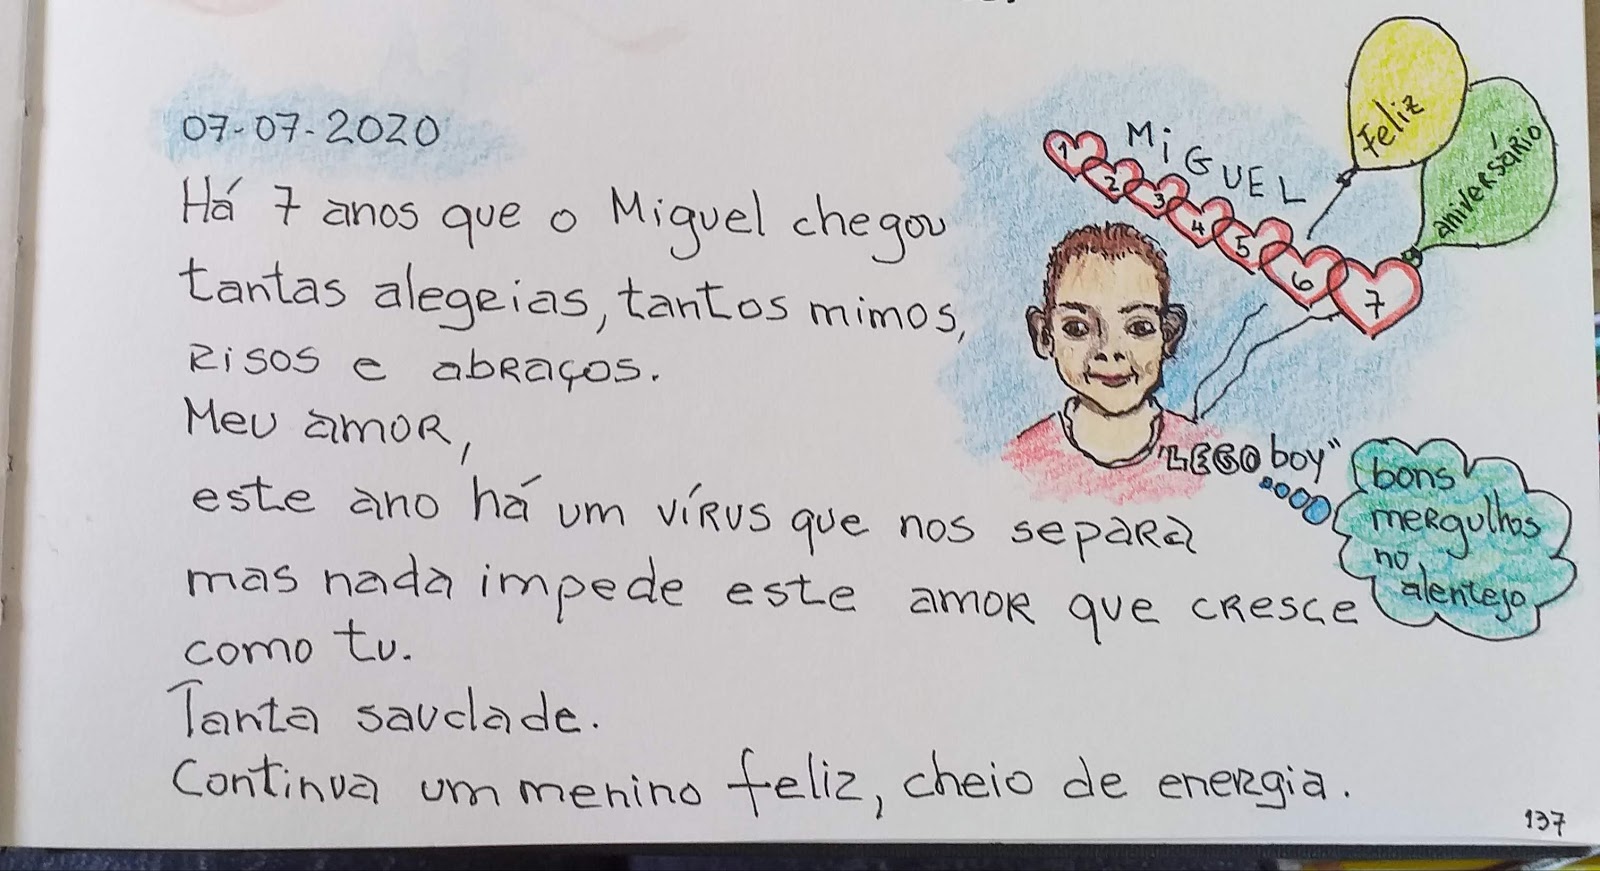 07-07-2020
Há 7 anos que o Miguel chegou
tantas alegrias, tantos mimos,
risos e abraços.
Meu amor,
este ano há um vírus que nos separa
mas nada impede este amor que cresce
como tu.
Tanta saudade.
Continua um menino feliz, cheio de energia.
MiGUEL
1 2 3 4 5 6 7
Feliz
aniversário
"LEGO boy"
bons
mergulhos
no
alentejo
137